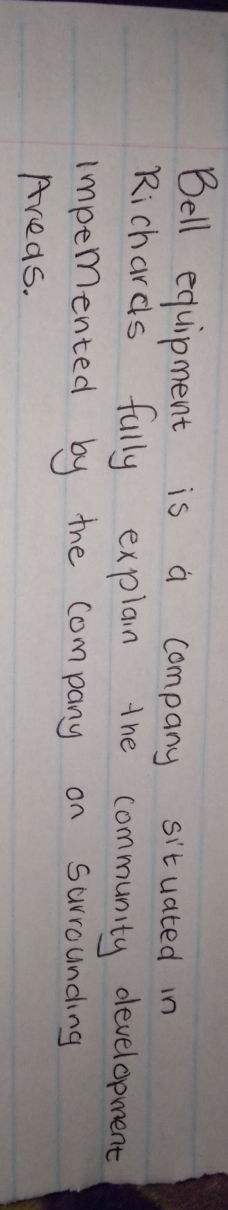 Bell equipment is a company situated in
Richards fully explain the community development
impemented by the company on surrounding
Areas.